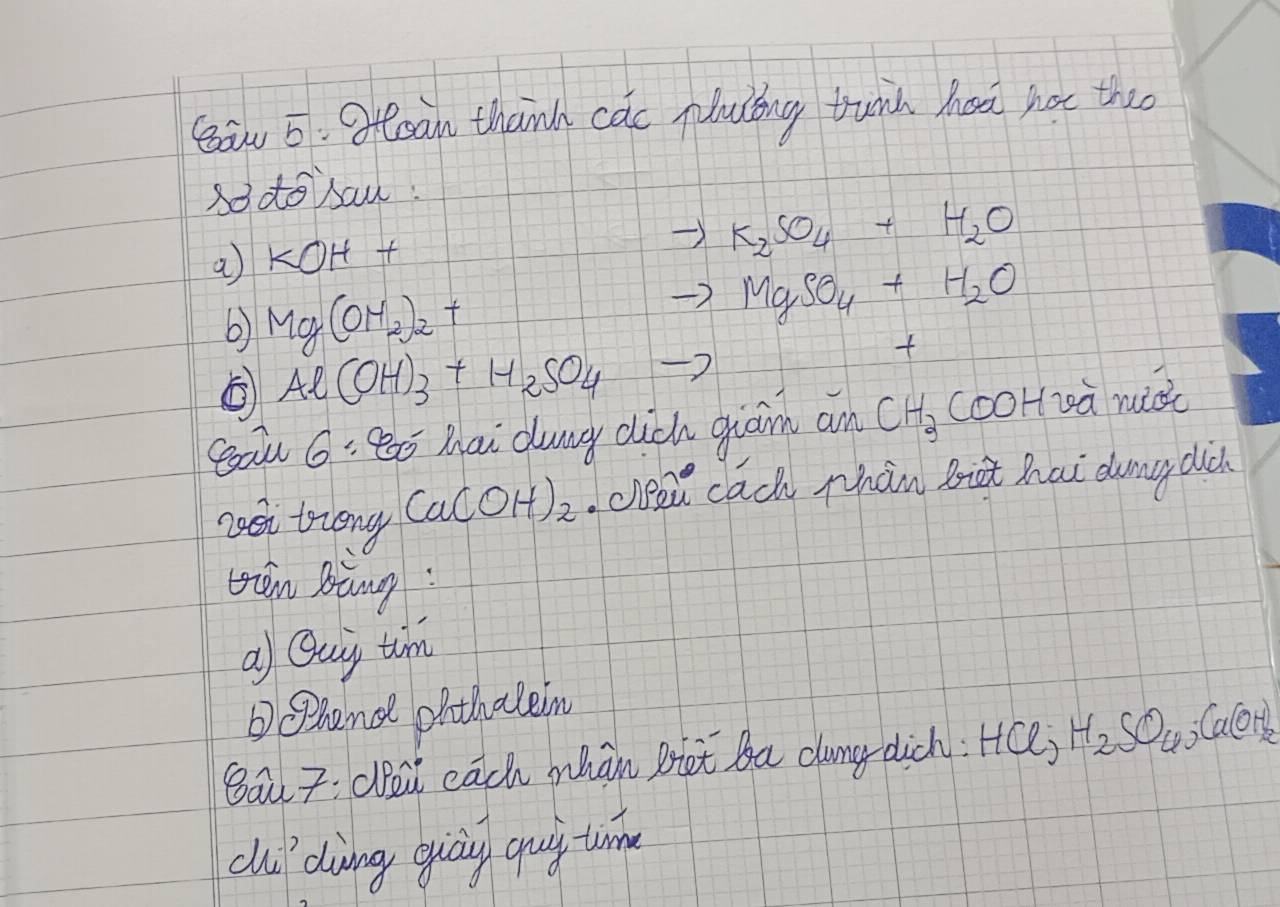 Câu 5: Hoàn thành các phương trình hoá học theo
sơ đồ sau:
a) KOH + → K₂SO₄ + H₂O
b) Mg(OH₂)₂ + → MgSO₄ + H₂O
c) Al(OH)₃ + H₂SO₄ → +
Câu 6: Có hai dung dịch giấm ăn CH₃COOH và nước
vôi trong Ca(OH)₂. Nêu cách phân biệt hai dung dịch
trên bằng:
a) Quỳ tím
b) Phenol phthalein
Câu 7: Nêu cách nhận biết ba dung dịch: HCl; H₂SO₄; Ca(OH)₂
chỉ dùng giấy quỳ tím